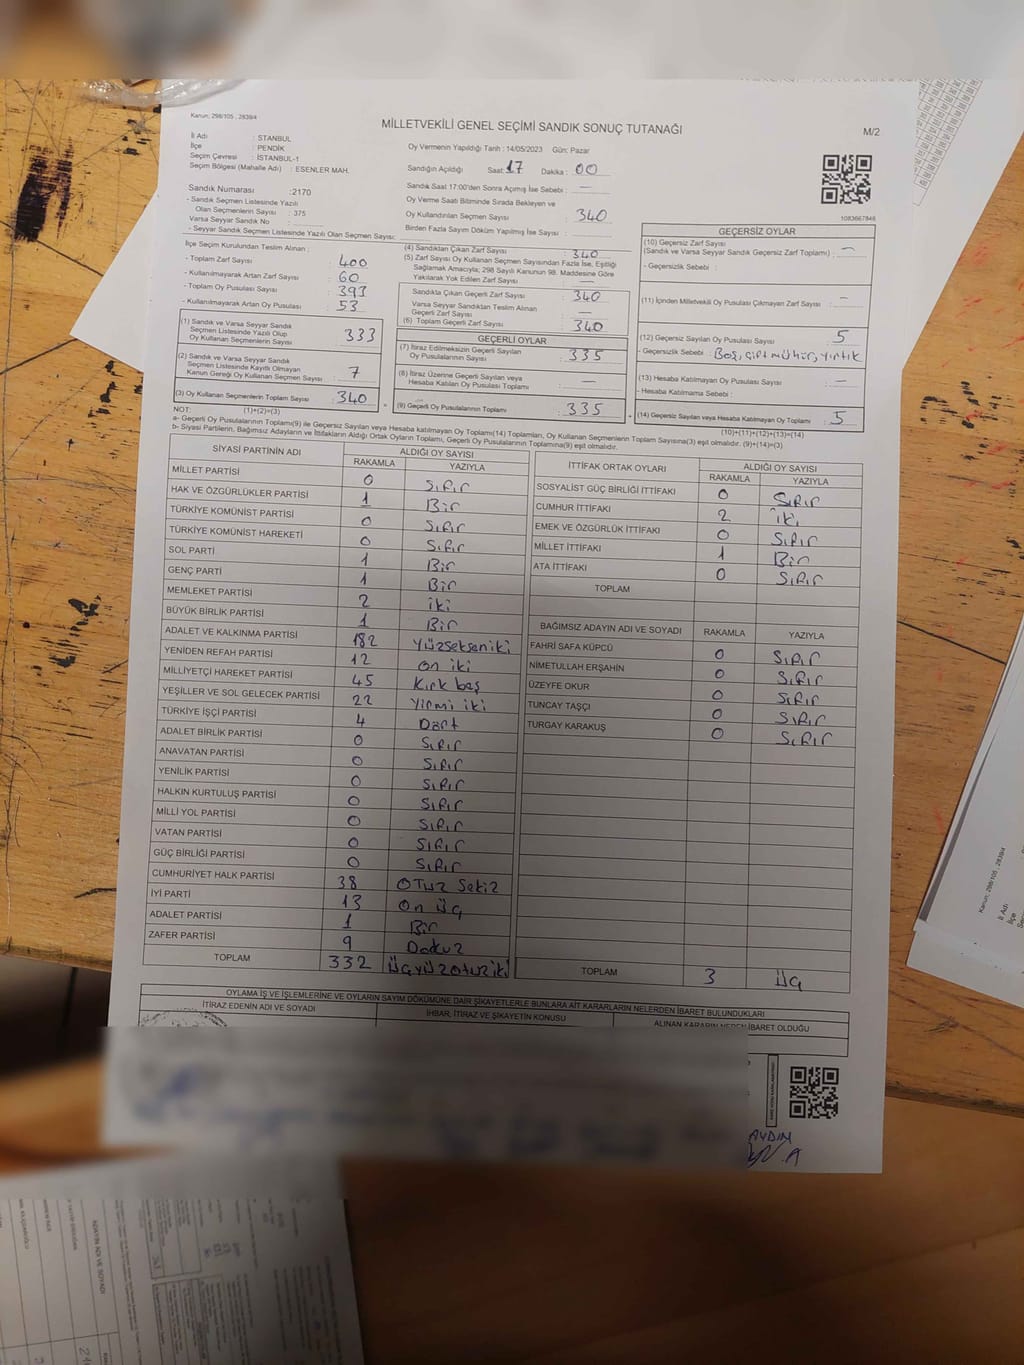 Kanun; 298/105 , 2839/4
MİLLETVEKİLİ GENEL SEÇİMİ SANDIK SONUÇ TUTANAĞI
M/2
İl Adı : STANBUL
İlçe : PENDİK
Seçim Çevresi : İSTANBUL-1
Seçim Bölgesi (Mahalle Adı) : ESENLER MAH.
Oy Vermenin Yapıldığı Tarih : 14/05/2023 Gün: Pazar
Sandığın Açıldığı Saat: 17 Dakika : 00
Sandık Saat 17:00'den Sonra Açımış İse Sebebi : —
Oy Verme Saati Bitiminde Sırada Bekleyen ve
Oy Kullandırılan Seçmen Sayısı : 340
Birden Fazla Sayım Döküm Yapılmış İse Sayısı :
1083667846
Sandık Numarası :2170
- Sandık Seçmen Listesinde Yazılı
Olan Seçmenlerin Sayısı : 375
Varsa Seyyar Sandık No :
- Seyyar Sandık Seçmen Listesinde Yazılı Olan Seçmen Sayısı:
İlçe Seçim Kurulundan Teslim Alınan :
- Toplam Zarf Sayısı : 400
- Kullanılmayarak Artan Zarf Sayısı : 60
- Toplam Oy Pusulası : 393
- Kullanılmayarak Artan Oy Pusulası : 53
(1) Sandık ve Varsa Seyyar Sandık
Seçmen Listesinde Yazılı Olup
Oy Kullananların Sayısı : 333
(2) Sandık ve Varsa Seyyar Sandık
Seçmen Listesinde Kayıtlı Olmayan
Kanun Gereği Oy Kullanan Seçmen Sayısı : 7
(3) Oy Kullanan Seçmenlerin Toplam Sayısı : 340
(1)+(2)=(3)
(4) Sandıktan Çıkan Zarf Sayısı : 340
(5) Zarf Sayısı Oy Kullanan Seçmen Sayısından Fazla İse, Eşitliği
Sağlamak Amacıyla; 298 Sayılı Kanunun 98. Maddesine Göre
Yakılarak Yok Edilen Zarf Sayısı : —
Sandıkta Çıkan Geçerli Zarf Sayısı : 340
Varsa Seyyar Sandıktan Teslim Alınan
Geçerli Zarf Sayısı : —
(6) Toplam Geçerli Zarf Sayısı : 340
GEÇERLİ OYLAR
(7) İtiraz Edilmeksizin Geçerli Sayılan
Oy Pusulalarının Sayısı : 335
(8) İtiraz Üzerine Geçerli Sayılan veya
Hesaba Katılan Oy Pusulası Toplamı : —
(9) Geçerli Oy Pusulalarının Toplamı : 335
GEÇERSİZ OYLAR
(10) Geçersiz Zarf Sayısı
(Sandık ve Varsa Seyyar Sandık Geçersiz Zarf Toplamı) : —
- Geçersizlik Sebebi :
(11) İçinden Milletvekili Oy Pusulası Çıkmayan Zarf Sayısı : —
(12) Geçersiz Sayılan Oy Pusulası Sayısı : 5
- Geçersizlik Sebebi : Boş, çift mühür, yırtık
(13) Hesaba Katılmayan Oy Pusulası Sayısı : —
- Hesaba Katılmama Sebebi :
(14) Geçersiz Sayılan veya Hesaba Katılmayan Oy Toplamı : 5
(10)+(11)+(12)+(13)=(14)
NOT:
a- Geçerli Oy Pusulalarının Toplamı(9) ile Geçersiz Sayılan veya Hesaba Katılmayan Oy Toplamı(14) Toplamları, Oy Kullanan Seçmenlerin Toplam Sayısına(3) eşit olmalıdır. (9)+(14)=(3)
b- Siyasi Partilerin, Bağımsız Adayların ve İttifakların Aldığı Ortak Oyların Toplamı, Geçerli Oy Pusulalarının Toplamına(9) eşit olmalıdır.
SİYASİ PARTİNİN ADI ALDIĞI OY SAYISI
RAKAMLA YAZIYLA
MİLLET PARTİSİ 0 Sıfır
HAK VE ÖZGÜRLÜKLER PARTİSİ 1 Bir
TÜRKİYE KOMÜNİST PARTİSİ 0 Sıfır
TÜRKİYE KOMÜNİST HAREKETİ 0 Sıfır
SOL PARTİ 1 Bir
GENÇ PARTİ 1 Bir
MEMLEKET PARTİSİ 2 iki
BÜYÜK BİRLİK PARTİSİ 1 Bir
ADALET VE KALKINMA PARTİSİ 182 Yüzsekseniki
YENİDEN REFAH PARTİSİ 12 on iki
MİLLİYETÇİ HAREKET PARTİSİ 45 Kırk beş
YEŞİLLER VE SOL GELECEK PARTİSİ 22 Yirmi iki
TÜRKİYE İŞÇİ PARTİSİ 4 Dört
ADALET BİRLİK PARTİSİ 0 Sıfır
ANAVATAN PARTİSİ 0 Sıfır
YENİLİK PARTİSİ 0 Sıfır
HALKIN KURTULUŞ PARTİSİ 0 Sıfır
MİLLİ YOL PARTİSİ 0 Sıfır
VATAN PARTİSİ 0 Sıfır
GÜÇ BİRLİĞİ PARTİSİ 0 Sıfır
CUMHURİYET HALK PARTİSİ 38 OTuz Sekiz
İYİ PARTİ 13 On üç
ADALET PARTİSİ 1 Bir
ZAFER PARTİSİ 9 Dokuz
TOPLAM 332 üçyüzotuziki
İTTİFAK ORTAK OYLARI ALDIĞI OY SAYISI
RAKAMLA YAZIYLA
SOSYALİST GÜÇ BİRLİĞİ İTTİFAKI 0 Sıfır
CUMHUR İTTİFAKI 2 iki
EMEK VE ÖZGÜRLÜK İTTİFAKI 0 Sıfır
MİLLET İTTİFAKI 1 Bir
ATA İTTİFAKI 0 Sıfır
TOPLAM
BAĞIMSIZ ADAYIN ADI VE SOYADI RAKAMLA YAZIYLA
FAHRİ SAFA KÜPCÜ 0 Sıfır
NİMETULLAH ERŞAHİN 0 Sıfır
ÜZEYFE OKUR 0 Sıfır
TUNCAY TAŞÇI 0 Sıfır
TURGAY KARAKUŞ 0 Sıfır
TOPLAM 3 üç
OYLAMA İŞ VE İŞLEMLERİNE VE OYLARIN SAYIM DÖKÜMÜNE DAİR ŞİKAYETLERLE BUNLARA AİT KARARLARIN NELERDEN İBARET BULUNDUKLARI
İTİRAZ EDENİN ADI VE SOYADI İHBAR, İTİRAZ VE ŞİKAYETİN KONUSU ALINAN KARARIN NEDEN İBARET OLDUĞU
AYDIN
Kanun; 298/105 , 2839/4
İl Adı
İlçe
ADAYIN ADI VE SOYADI